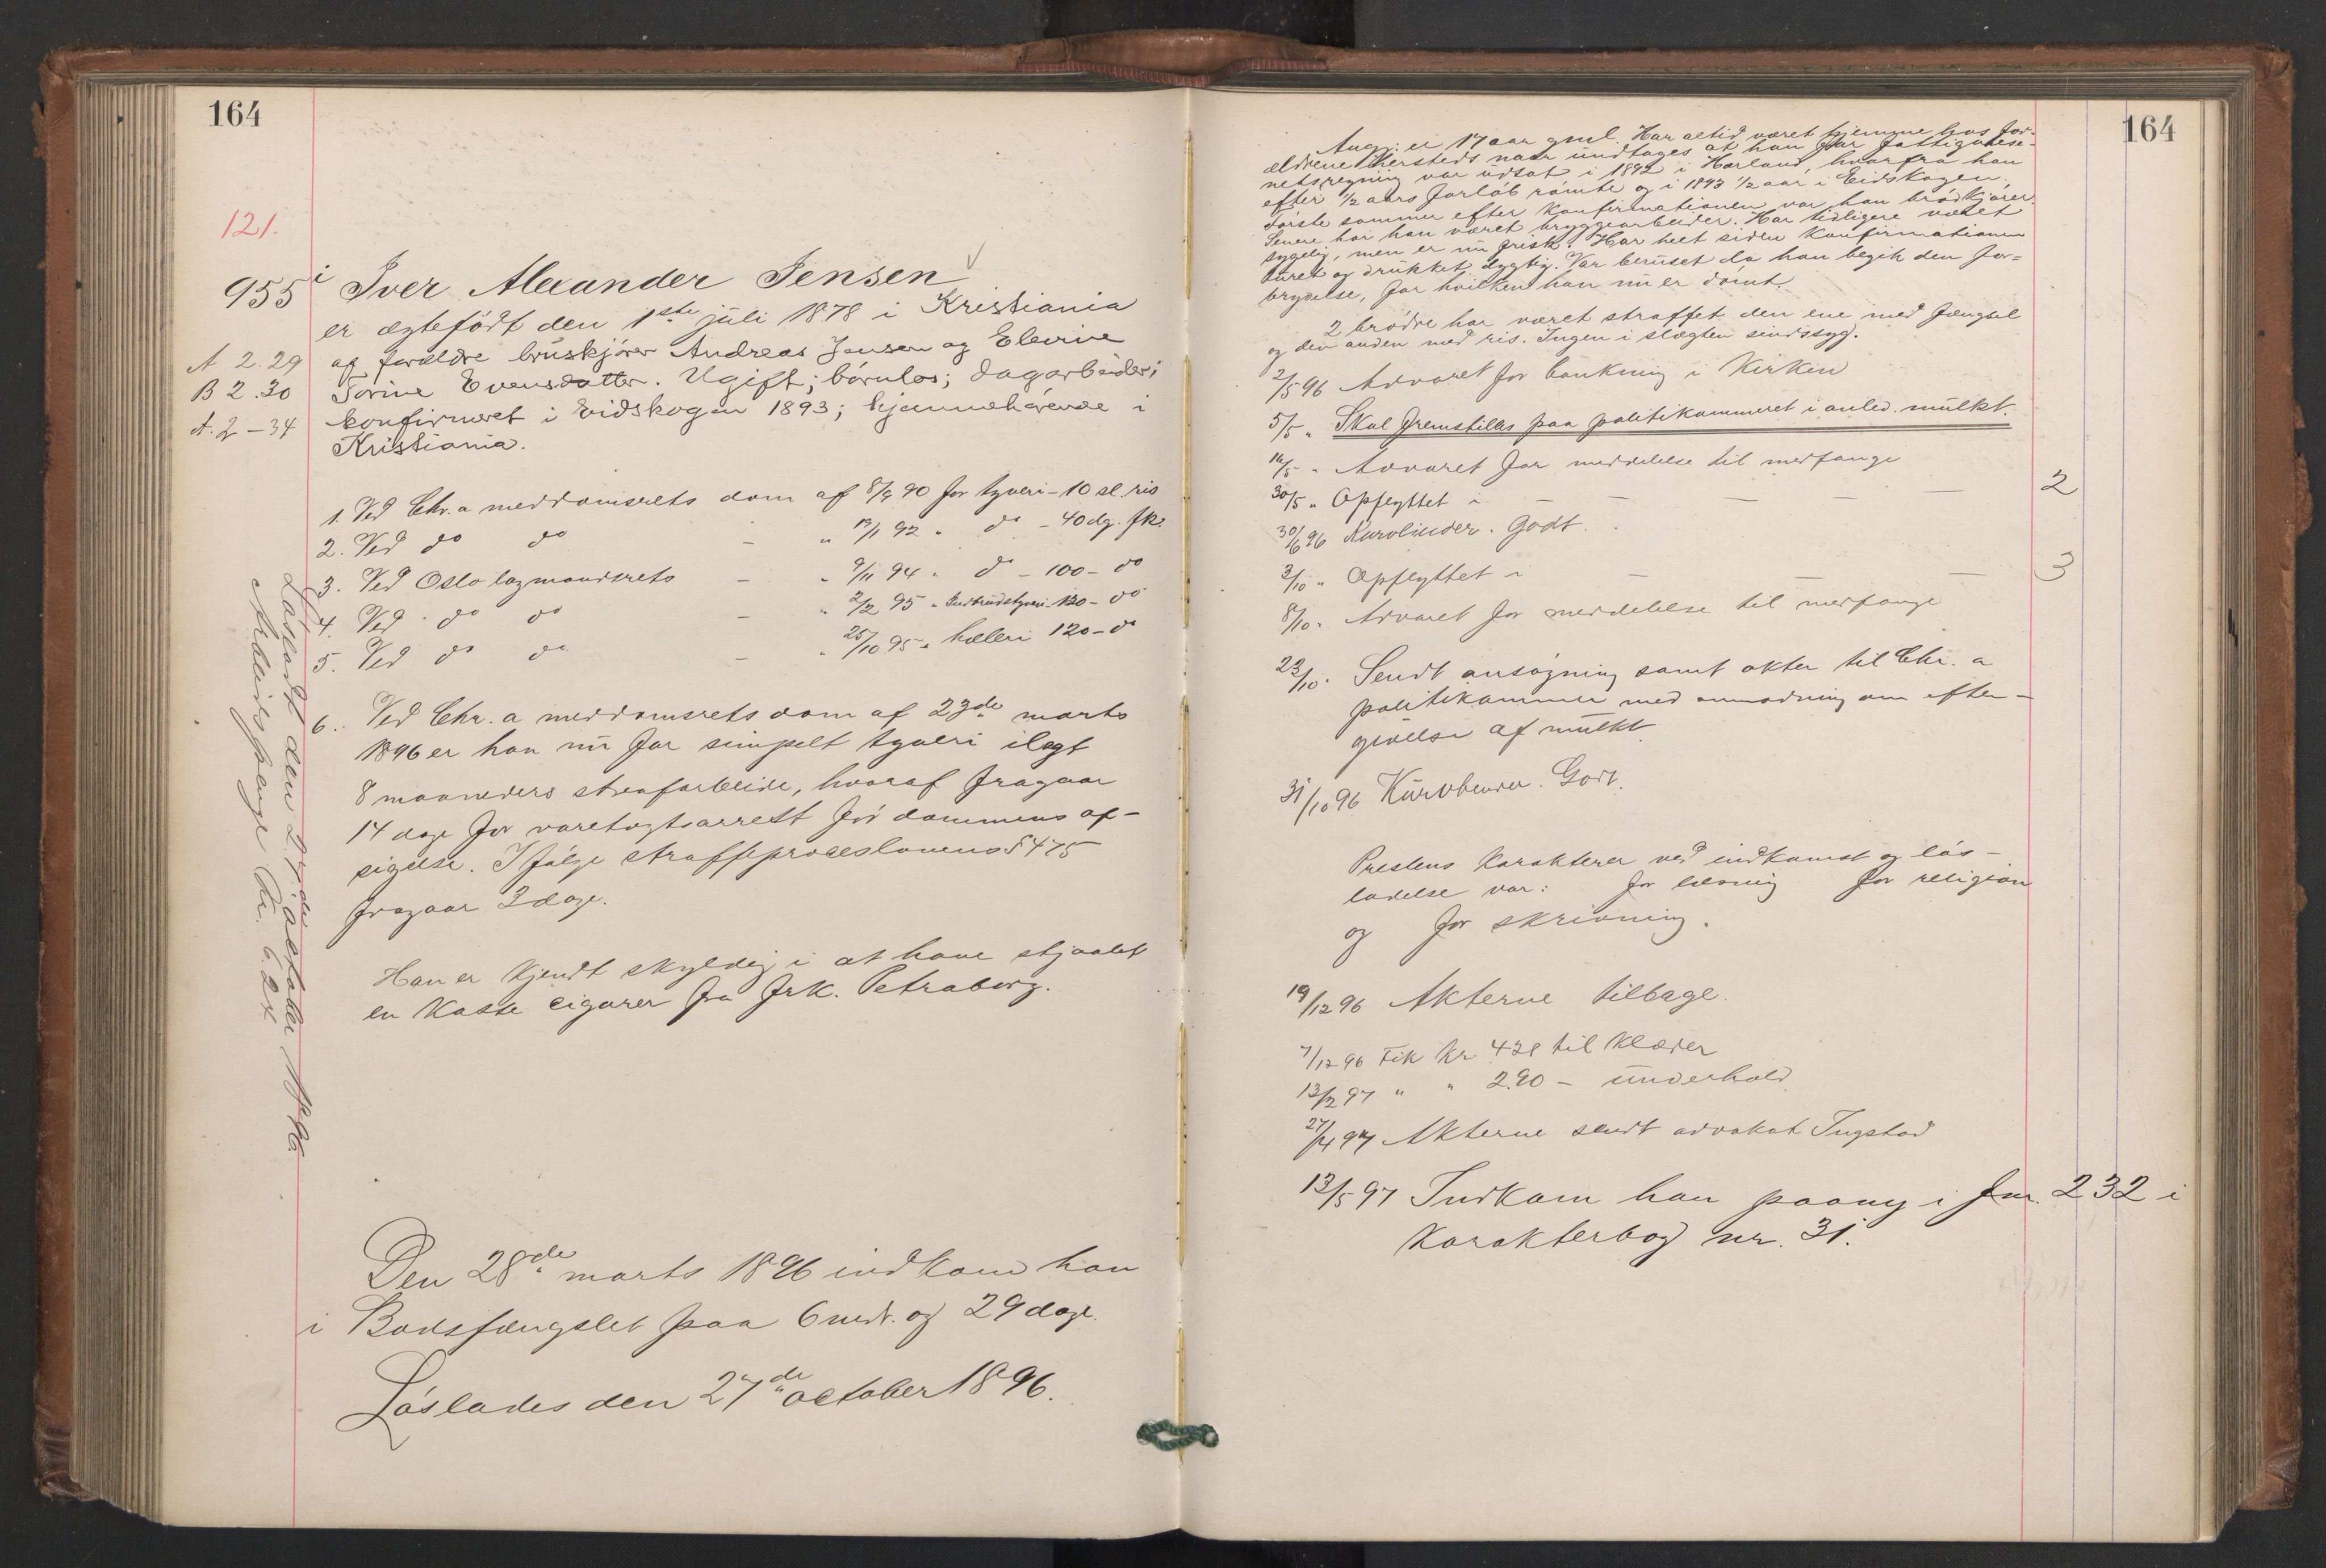 164
121.
955 i Iver Alexander Jensen
er ægtefødt den 1ste juli 1878 i Kristiania
A 2.29 af forældre bruskjører Andreas Jensen og Elevine
B 2.30 Torine Evensdatter. Ugift; børnløs; dagarbeider;
A. 2-34 konfirmeret i Eidskogen 1893; hjemmehørende i
Kristiania.
1. Ved Chr.a meddomsrets dom af 8/9 90 for tyveri - 10 sl. ris
2. Ved do do - " 19/1 92 " do - 40 dg. fk.
3. Ved Oslo lagmandsrets - " 9/11 94 " do - 100 - do
4. Ved do do - " 2/2 95 " Indbrudstyveri - 120 - do
5. Ved do do - " 25/10 95 " hæleri 120 - do
6. Ved Chr.a meddomsrets dom af 23de marts
1896 er han nu for simpelt tyveri ilagt
8 maaneders strafarbeide, hvoraf fragaar
14 dage for varetægtsarrest før dommens af-
sigelse. Ifølge straffeproceslovens § 475
fragaar 3 dage.
Han er kjendt skyldig i at have stjaalet
en kasse cigarer fra frk. Petraborg.
Den 28de marts 1896 indkom han
i Bodsfængslet paa 6 mdr. og 29 dage.
Løslades den 27de october 1896.
Løsladt den 27de october 1896.
Arbeidspenge Kr. 6.24
164
Angj: er 17 aar gml. Har altid været hjemme hos for-
ældrene dersteds naar undtages at han for fattigvæse-
nets regning var udsat i 1892 i Hærland, hvorfra han
efter 1/2 aars forløb rømte og i 1893 1/2 aar i Eidskogen.
Første sommer efter konfirmationen var han brødkjører.
Senere har han været bryggearbeider. Har tidligere været
sygelig, men er nu frisk. Har helt siden konfirmationen
turet og drukket dygtig. Var beruset da han begik den for-
brydelse, for hvilken han nu er dømt.
2 brødre har været straffet den ene med fængsel
og den anden med ris. Ingen i slægten sindssyg.
2/5 96 Advaret for bankning i kirken
5/5 " Skal fremstilles paa politikammeret i anled. mulkt.
16/5 " Advaret for meddelelse til medfange
30/5 " Opflyttet i - - - - 2
30/6 96 Kurvbinder. Godt.
3/10 " Opflyttet i - - - 3
8/10 " Advaret for meddelelse til medfange
23/10 " Sendt ansøgning samt akter til Chr.a
politikammer med anmodning om efter-
givelse af mulkt
31/10 96 Kurvbinder. Godt.
Prestens karakterer ved indkomst og løs-
ladelse var: for læsning for religion
og for skrivning.
19/12 96 Akterne tilbage.
7/12 96 Fik kr 4.28 til klæder
13/2 97 " " 2.90 - underhold
27/4 97 Akterne sendt advokat Tugstad
13/5 97 Indkom han paany i fnr. 232 i
karakterbog nr. 31.